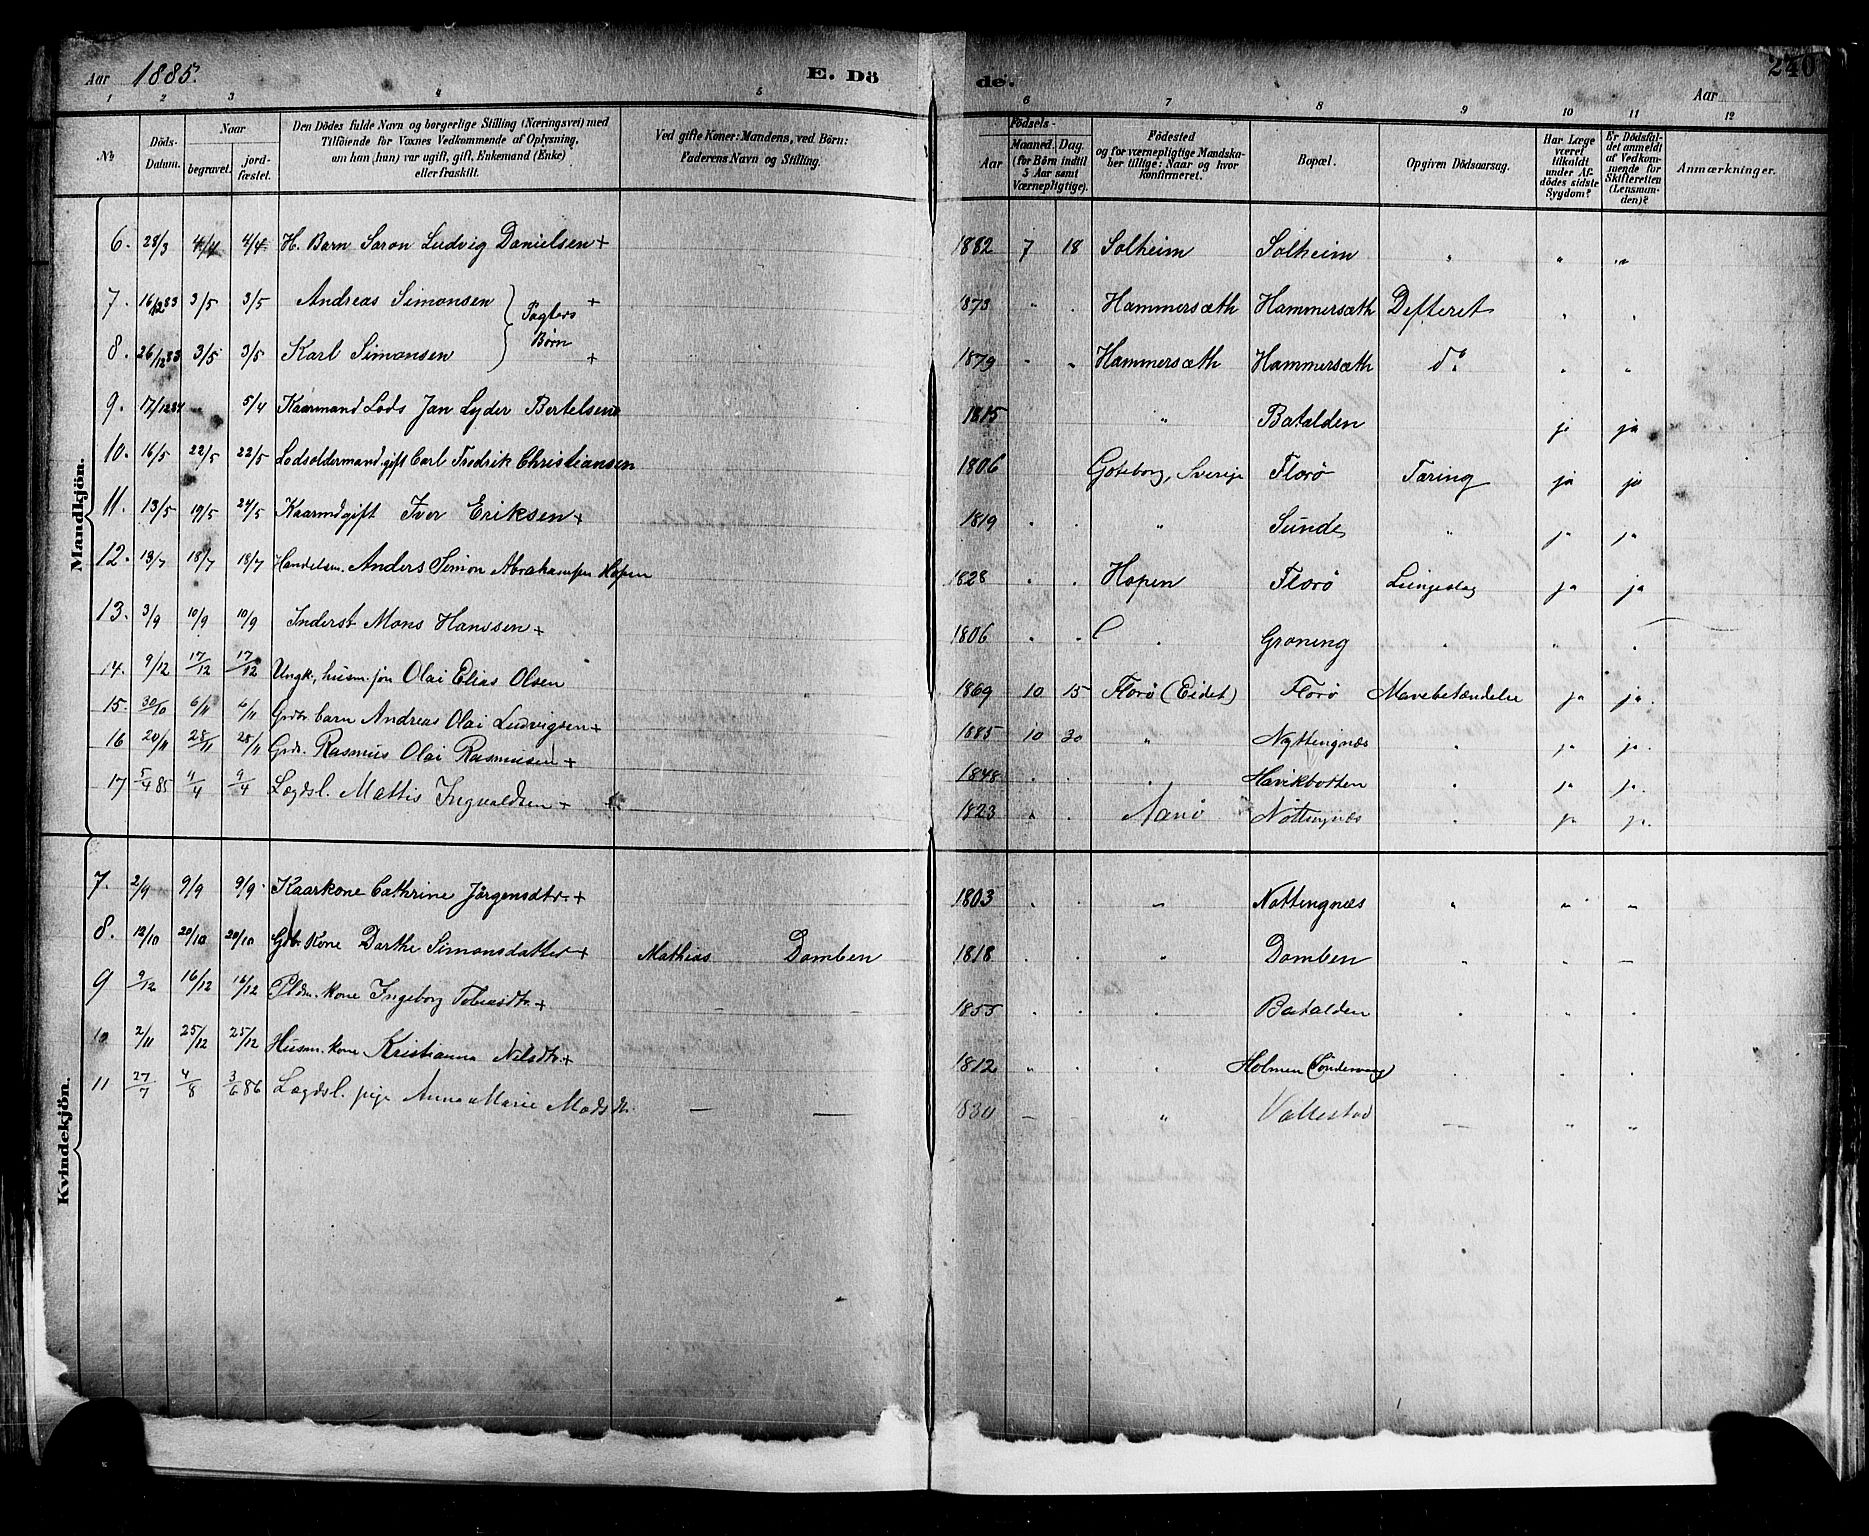 Aar 1885. E. Döde. 240
Aar
1 2 3 4 5 6 7 8 9 10 11 12
No
Döds-Datum.
Naar
begravet.
jordfæstet.
Den Dödes fulde Navn og borgerlige Stilling (Næringsvei) med
Tilföiende for Voxnes Vedkommende af Oplysning,
om han (hun) var ugift, gift, Enkemand (Enke)
eller fraskilt.
Ved gifte Koner: Mandens, ved Börn:
Faderens Navn og Stilling.
Födsels-
Aar
Maaned. Dag.
(for Börn indtil
5 Aar samt
Værnepligtige).
Födested
og for værnepligtige Mandska-
ber tillige: Naar og hvor
konfirmeret.
Bopæl.
Opgiven Dödsaarsag.
Har Læge
været
tilkaldt
under Af-
dödes sidste
Sygdom?
Er Dödsfal-
det anmeldt
af Vedkom-
mende for
Skifteretten
(Lensman-
den)?
Anmærkninger.
Mandkjön.
6. 28/3 4/4 4/4 H. Barn Saron Ludvig Danielsen + 1882 7 18 Solheim Solheim " " "
7. 16/12 83 3/5 3/5 Andreas Simonsen + 1873 " . Hammersæth Hammersæth Defteret " "
Børn
8. 26/12 83 3/5 3/5 Karl Simonsen + 1879 " " Hammersæth Hammersæth do " "
9. 17/12 84 5/4 Kaarmand Lods Jan Lyder Bertelsen 1815 " Batalden ja ja
10. 16/5 22/5 22/5 Lodsoldermand. gift Carl Fredrik Christiansen 1806 Gøteborg, Sverige Florø Tæring ja ja
11. 13/5 19/5 24/5 Kaarmd gift Iver Eriksen + 1819 . . " Sunde " ja ja
12. 13/7 18/7 18/7 Handelsm. Anders Simon Abrahamsen Hopen 1828 . . Hopen Florø Lungeslag ja ja
13. 3/9 10/9 10/9 Inderst Mons Hanssen + 1806 . . " Grøning " " "
14. 9/12 17/12 17/12 Ungk, husm. søn Olai Elias Olsen 1869 10 15 Florø (Eidet) Florø Mavebetændelse ja ja.
15. 30/10 6/11 6/11 Grdbr barn Andreas Olai Ludvigsen + 1885 10 30 " Nyttingnæs " ja ja.
16 20/11 28/11 28/11 Grdr. Rasmus Olai Rasmusen + 1848 . . " Havikbotten . ja ja.
17 5/4 85 9/4 9/4 Lægdsl. Mattis Ingvaldsen + 1823 " . Aarø Nøttingnæs . ja ja.
Kvindekjön.
7. 2/9 9/9 9/9. Kaarkone Cathrine Jörgensdtr. + 1803 . . " Nøttingnæs " " "
8. 12/10 20/10 20/10 Gdbr. Kone Darthe Simonsdatter + Mathias Domben 1818 . . " Domben " " –
9 9/12 16/12 16/12 Pldm. kone Ingeborg Tobiasdtr. + – – 1855 . . " Batalden . . .
10 2/11 25/12 25/12 Husm. kone Kristianna Nilsdtr. + 1812 " . " Holmen . " "
11 27/7 4/8 3/6 86 Lægdsl. pige Anna Marie Madsdtr. – – – " Vallestad – " "